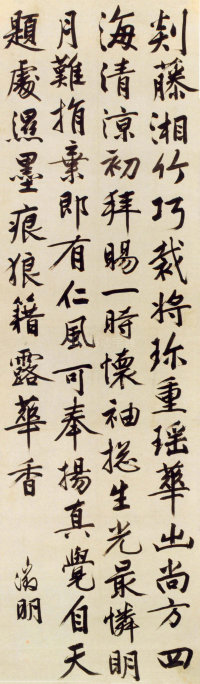 剡藤湘竹巧裁将珎重瑶華出尚方四
海清涼初拜賜一時懷袖捴生光最憐明
月難捐棄即有仁風可奉揚真覺自天
題處濕墨痕狼籍露華香
徵明